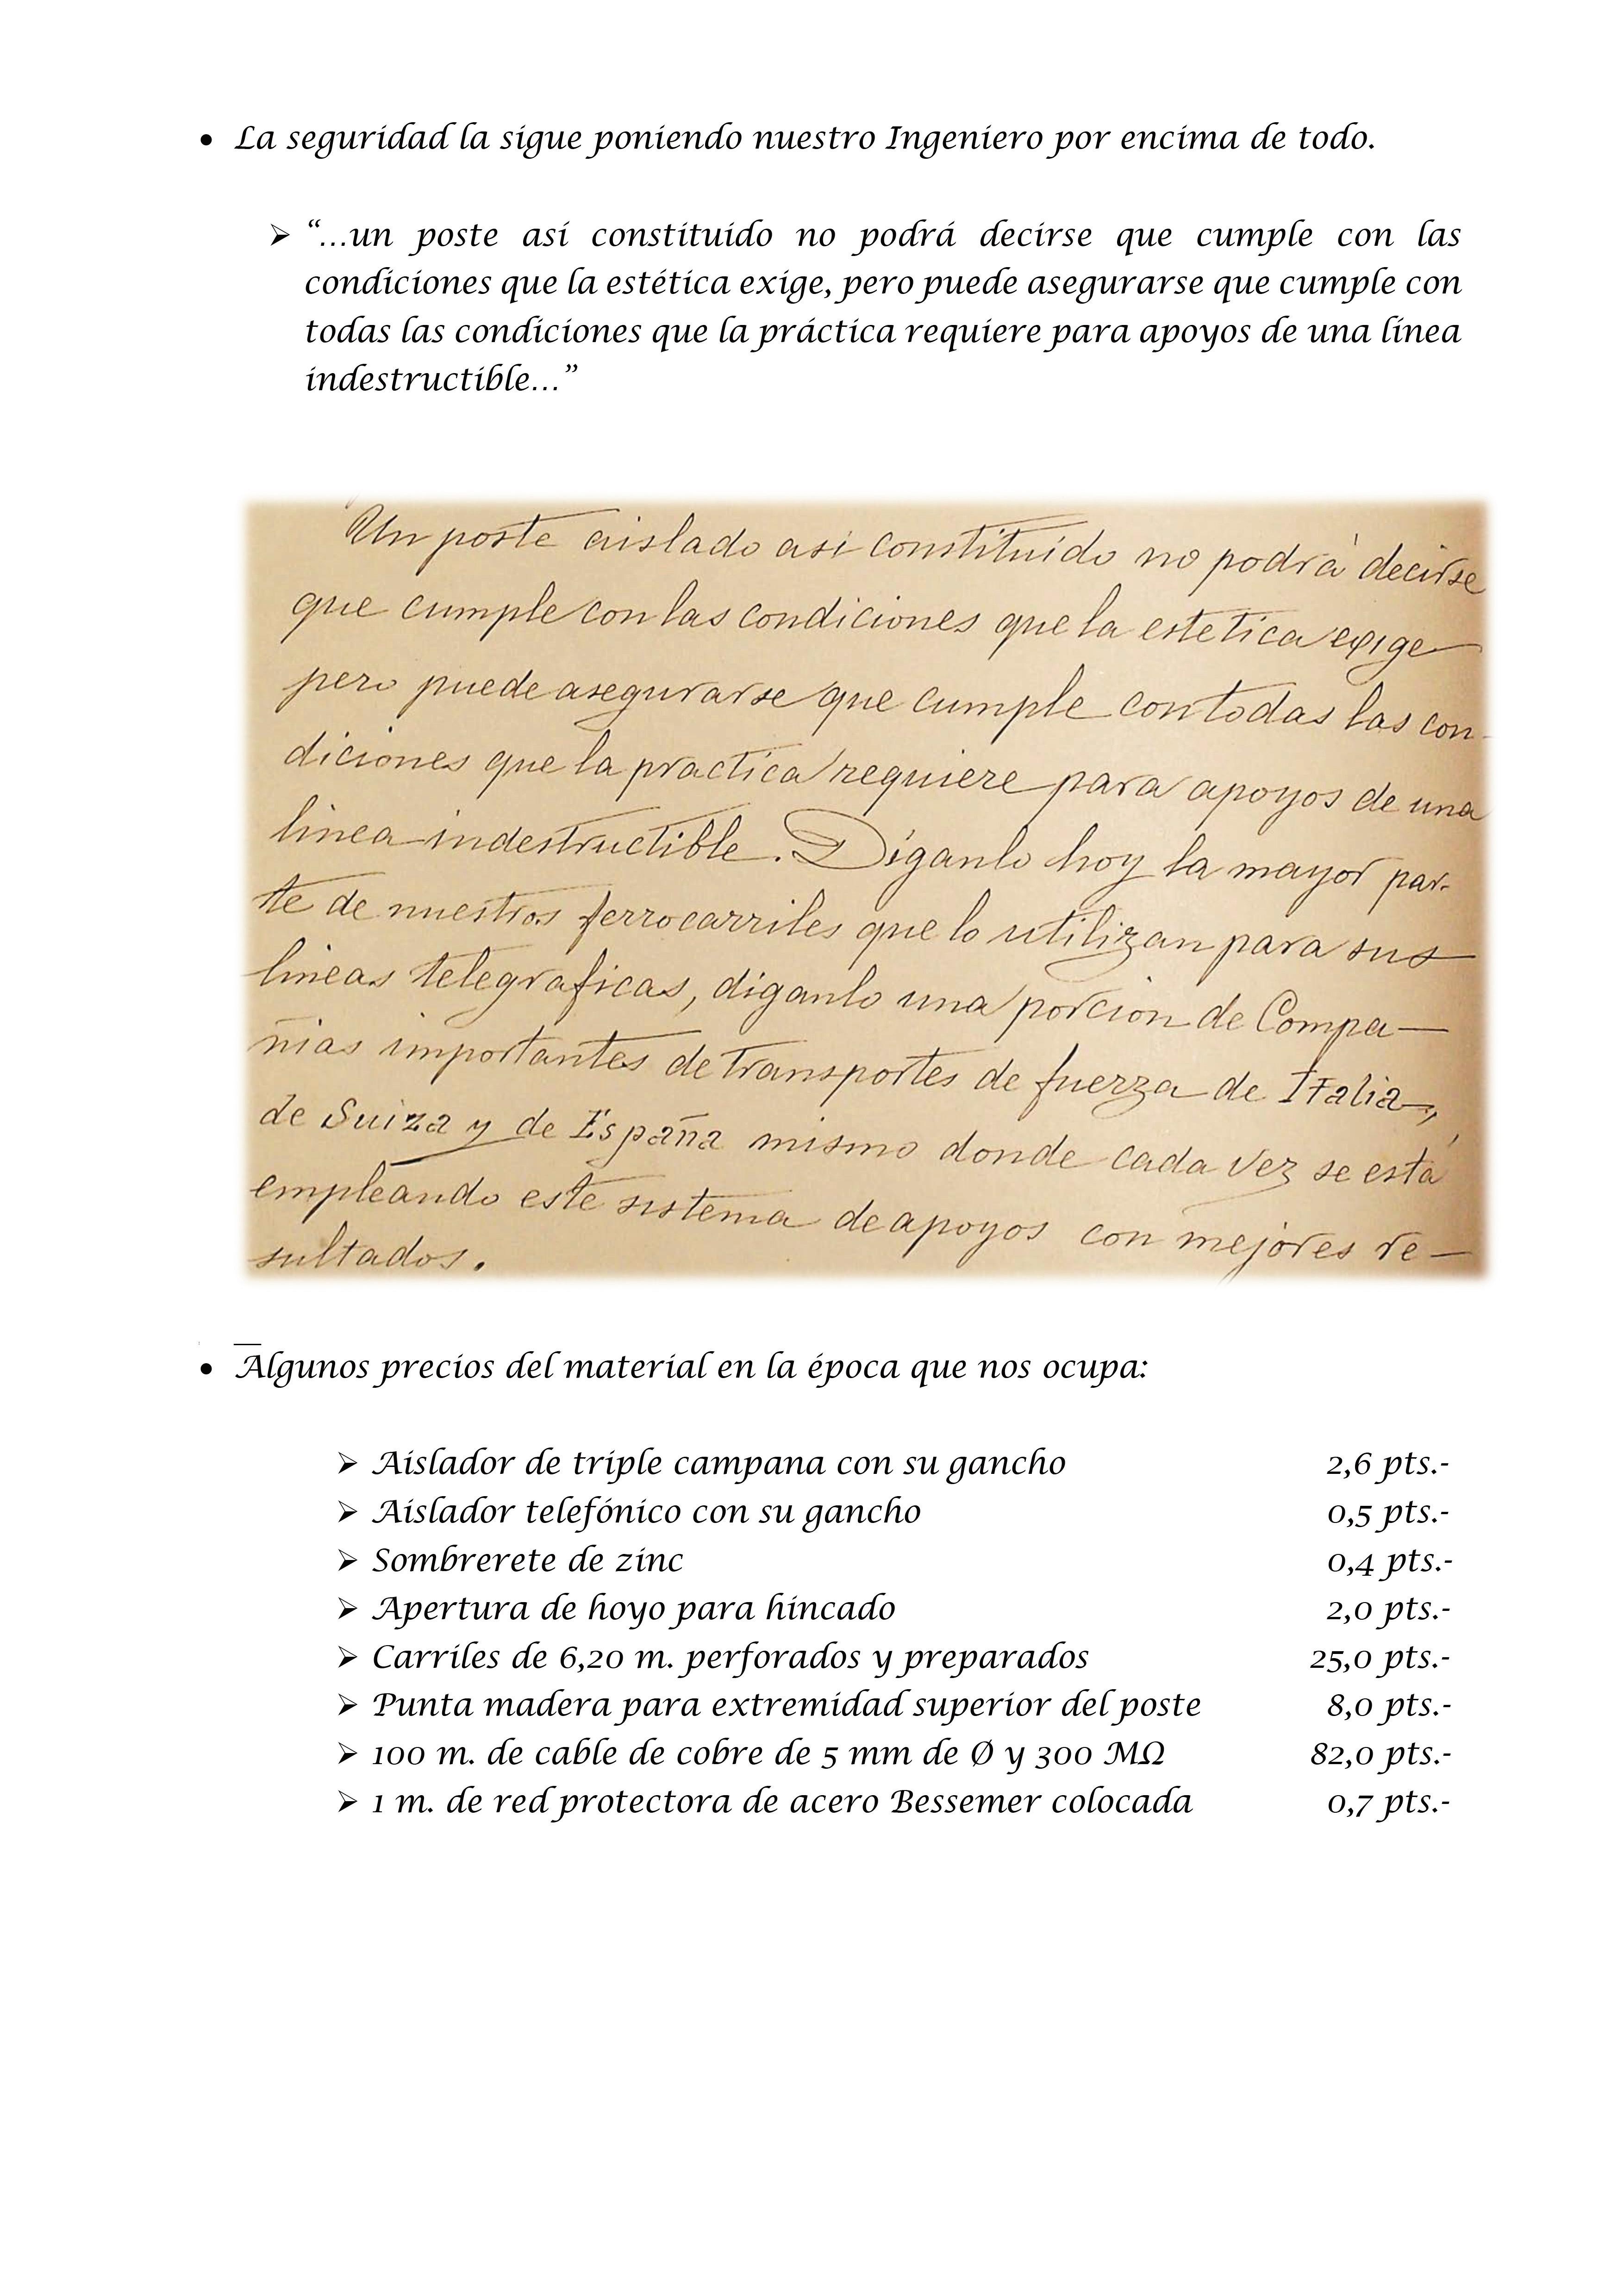 • La seguridad la sigue poniendo nuestro Ingeniero por encima de todo.
➢ “…un poste así constituido no podrá decirse que cumple con las
condiciones que la estética exige, pero puede asegurarse que cumple con
todas las condiciones que la práctica requiere para apoyos de una línea
indestructible…”
Un poste aislado asi constituido no podrá decirse
que cumple con las condiciones que la estetica exige
pero puede asegurarse que cumple con todas las con-
diciones que la practica requiere para apoyos de una
linea indestructible. Díganlo hoy la mayor par-
te de nuestros ferrocarriles que lo utilizan para sus
lineas telegraficas, diganlo una porcion de Compa-
ñias importantes de transportes de fuerza de Italia,
de Suiza y de España mismo donde cada vez se está
empleando este sistema de apoyos con mejores re-
sultados.
• Algunos precios del material en la época que nos ocupa:
➢ Aislador de triple campana con su gancho 2,6 pts.-
➢ Aislador telefónico con su gancho 0,5 pts.-
➢ Sombrerete de zinc 0,4 pts.-
➢ Apertura de hoyo para hincado 2,0 pts.-
➢ Carriles de 6,20 m. perforados y preparados 25,0 pts.-
➢ Punta madera para extremidad superior del poste 8,0 pts.-
➢ 100 m. de cable de cobre de 5 mm de Ø y 300 MΩ 82,0 pts.-
➢ 1 m. de red protectora de acero Bessemer colocada 0,7 pts.-